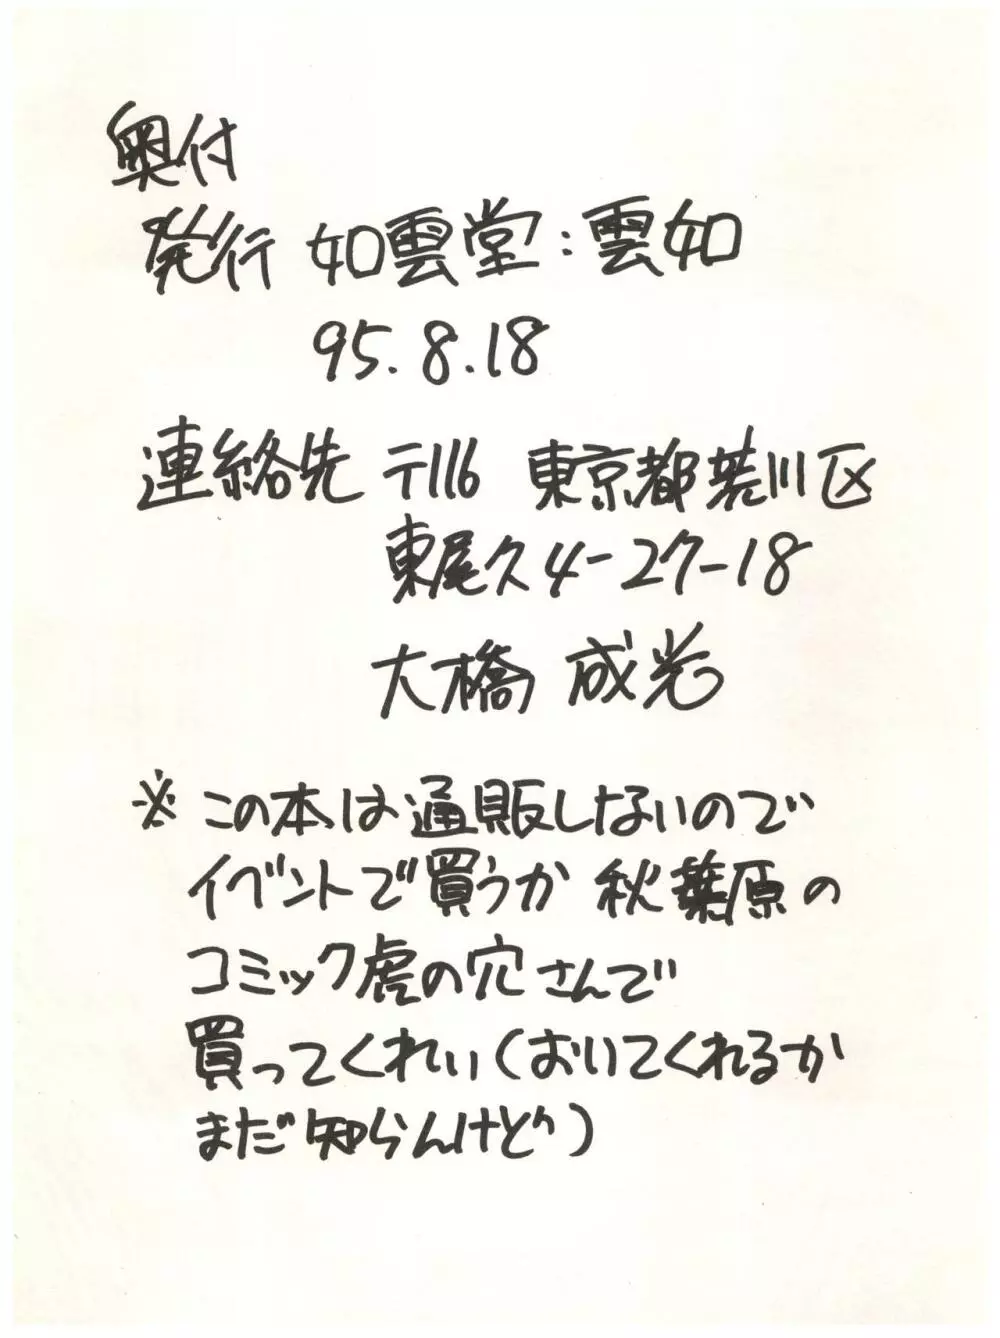 奥付
発行 如雲堂：雲如
95.8.18
連絡先 〒116 東京都荒川区
東尾久4-27-18
大橋 成光
※この本は通販しないので
イベントで買うか 秋葉原の
コミック虎の穴さんで
買ってくれぃ(おいてくれるか
まだ知らんけど)